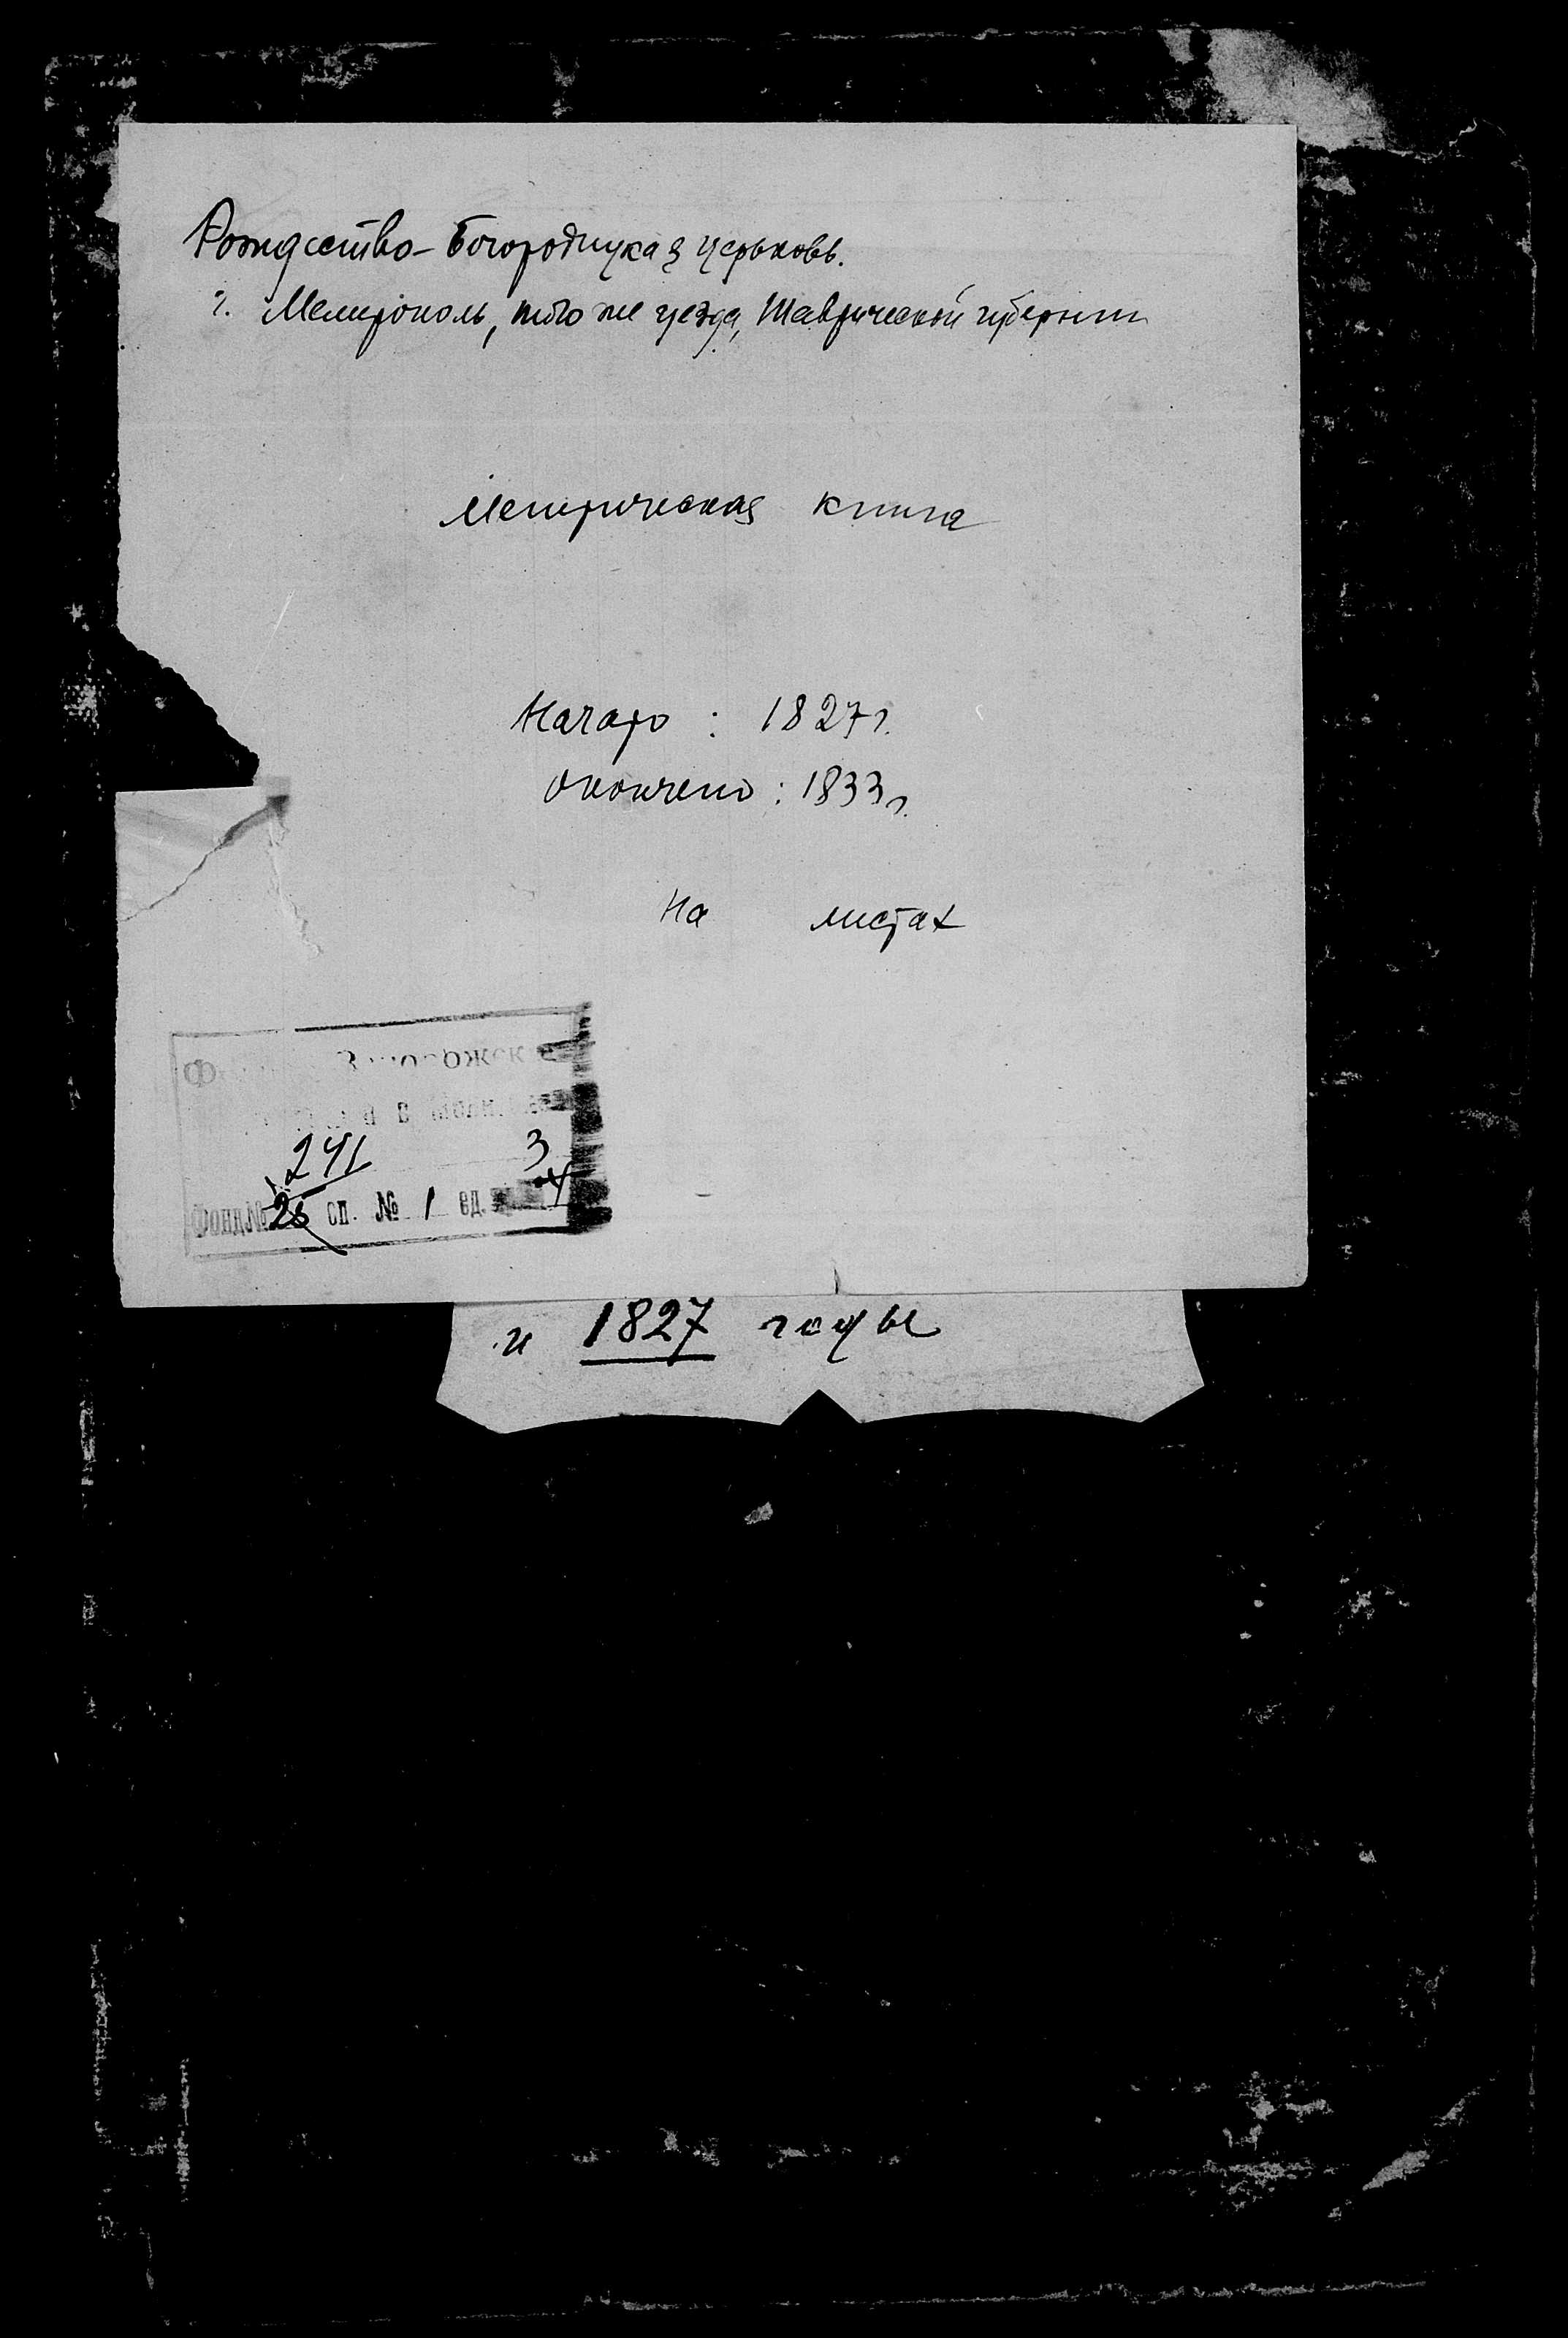 Рождество-Богородицкая церьковь.
г. Мелитополь, того же уезда, Таврической губернии
Метрическая книга
Начато : 1827 г.
Окончено : 1833 г.
На листах
241 3
Фонд № 26 оп. № 1 ед.
и 1827 годы